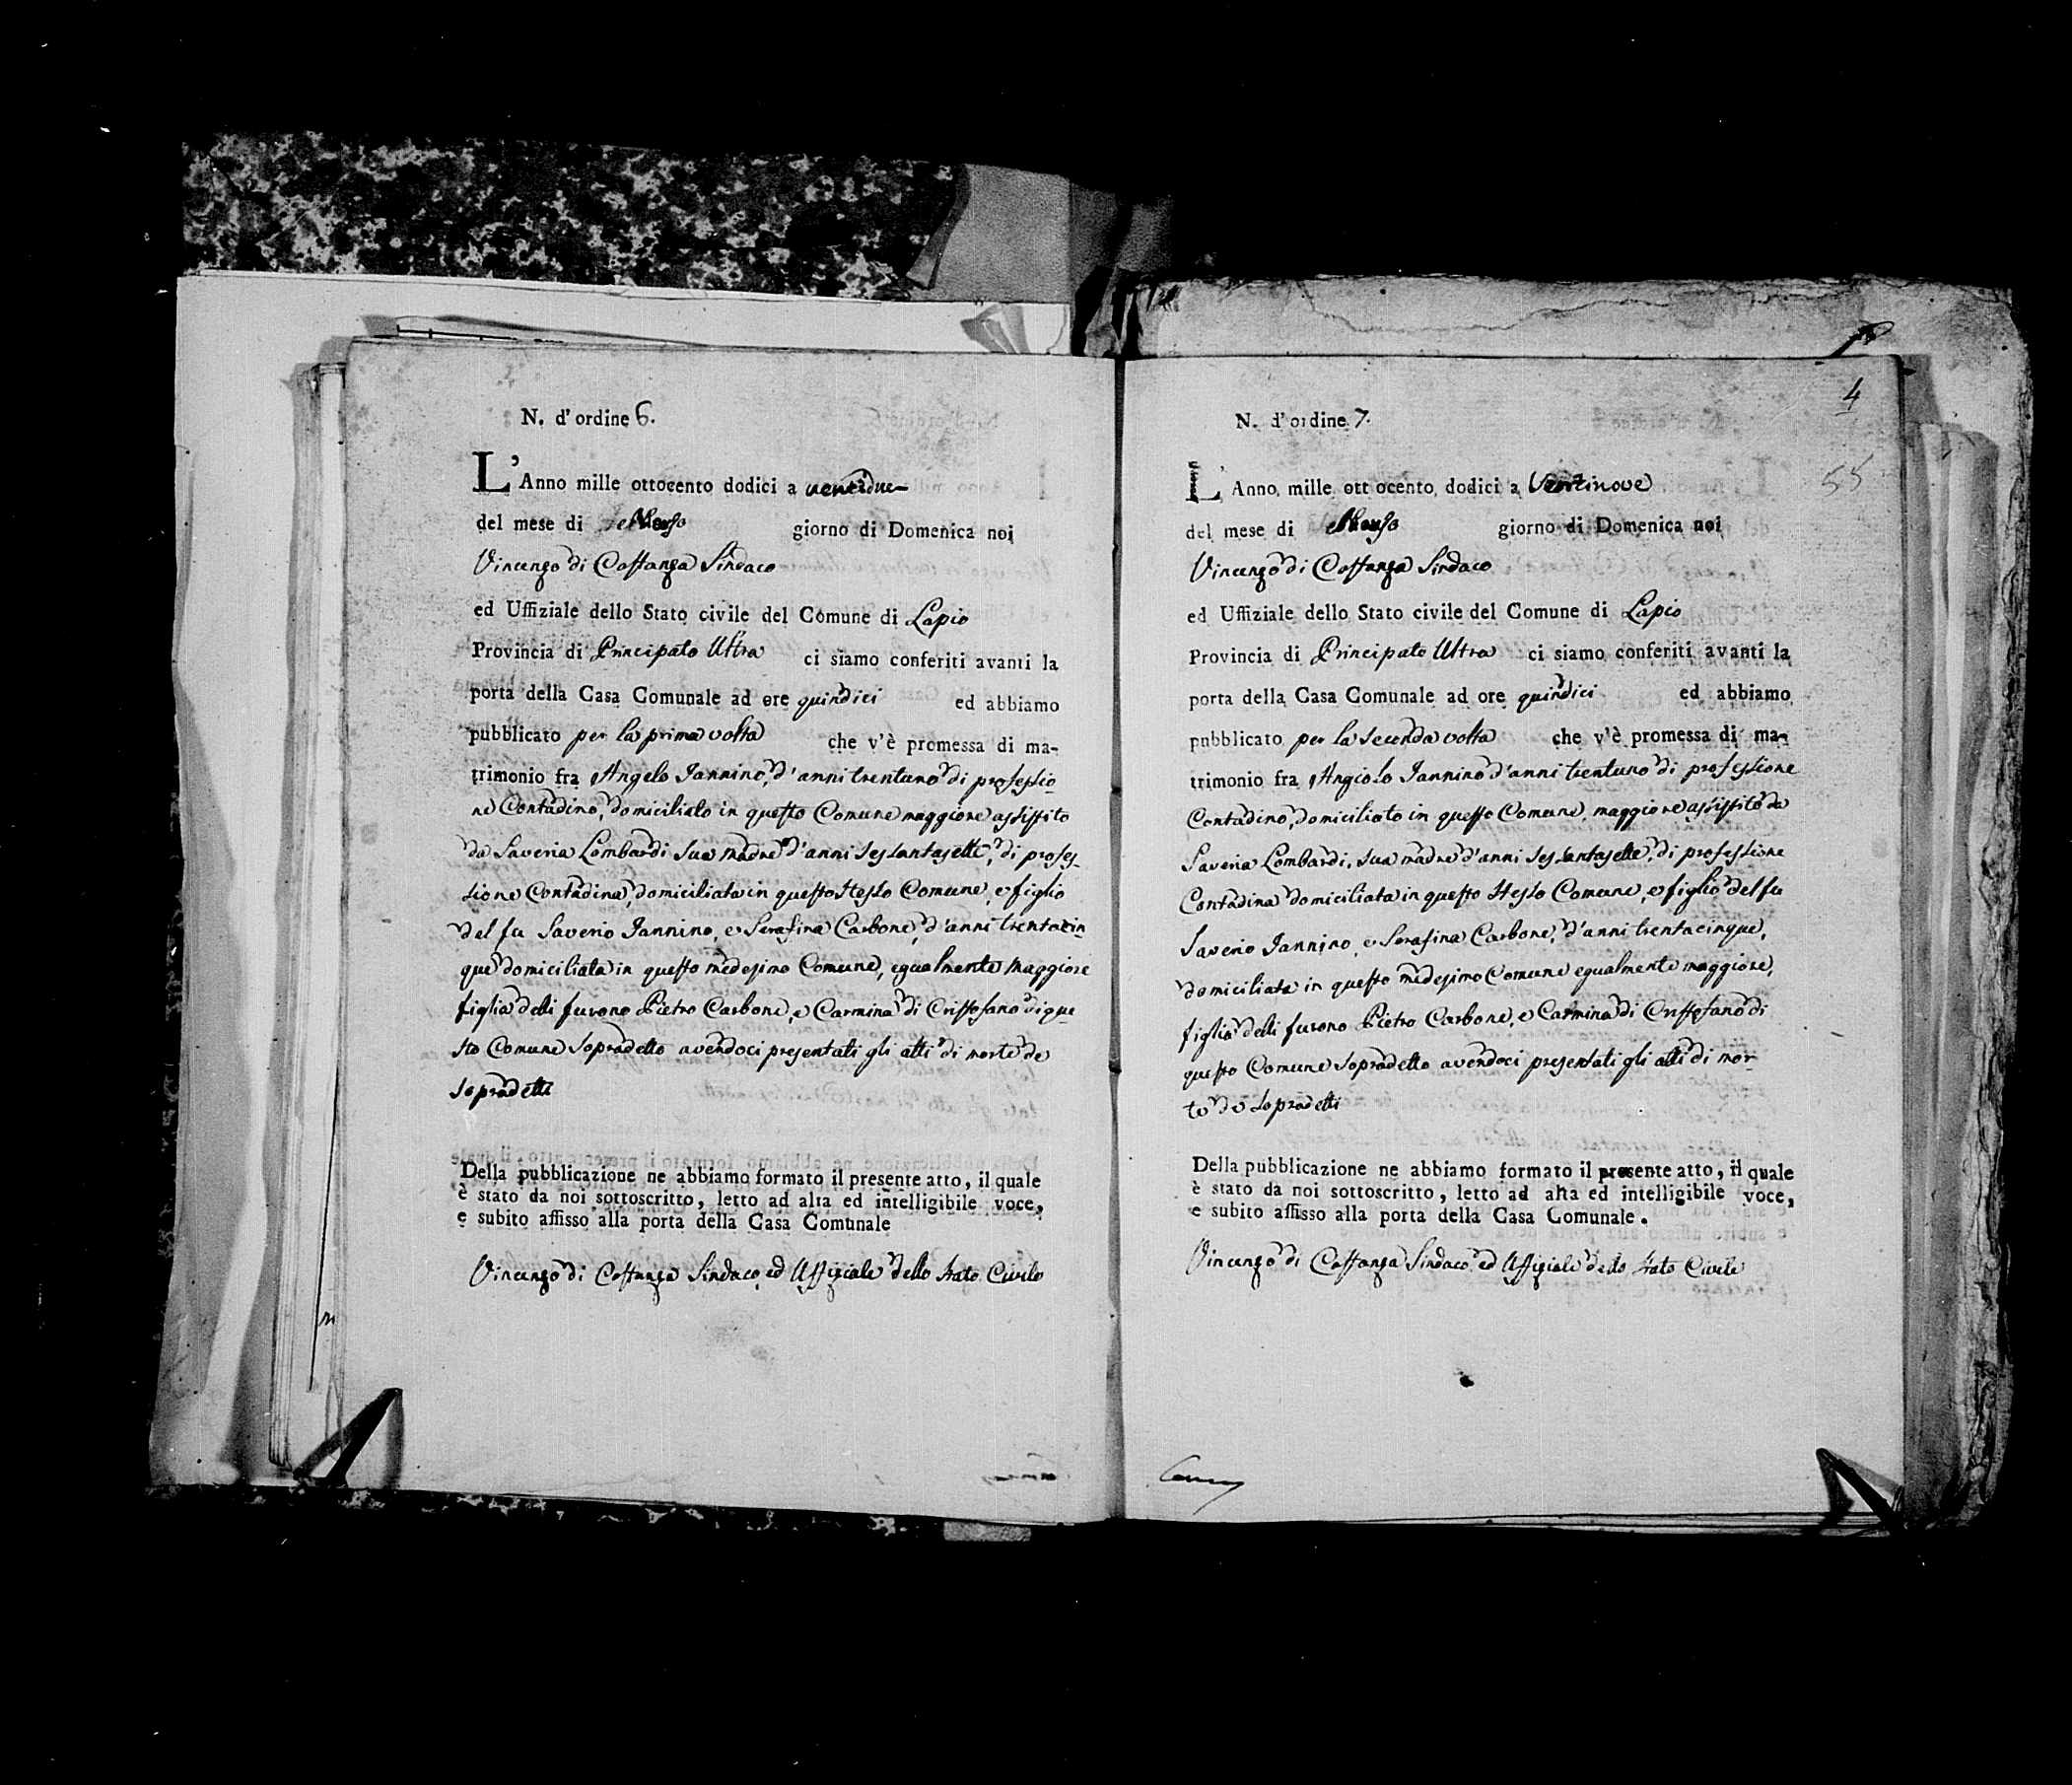 N. d' ordine 6.
L'Anno mille ottocento dodici a ventidue
del mese di Marzo giorno di Domenica noi
Vincenzo di Costanza Sindaco
ed Uffiziale dello Stato civile del Comune di Lapio
Provincia di Principato Ultra ci siamo conferiti avanti la
porta della Casa Comunale ad ore quindici ed abbiamo
pubblicato per la prima volta che v'è promessa di ma-
trimonio fra Angelo Jannino, d'anni trentuno di professio
ne Contadino, domiciliato in questo Comune maggiore assistito
da Saveria Lombardi sua madre d'anni sessantasette, di profes-
sione Contadina, domiciliata in questo stesso Comune, e figlio
del fu Saverio Jannino, e Serafina Carbone, d'anni trentacin
que domiciliata in questo medesimo Comune, egualmente maggiore
figlia delli furono Pietro Carbone, e Carmina di Cristofano di que
sto Comune sopradetto avendoci presentati gli atti di morte de
sopradetti
Della pubblicazione ne abbiamo formato il presente atto, il quale
è stato da noi sottoscritto, letto ad alta ed intelligibile voce,
e subito affisso alla porta della Casa Comunale
Vincenzo di Costanza Sindaco ed Uffiziale dello stato Civile
4
55
N. d' ordine 7.
L'Anno mille ottocento dodici a Ventinove
del mese di Marzo giorno di Domenica noi
Vincenzo di Costanza Sindaco
ed Uffiziale dello Stato civile del Comune di Lapio
Provincia di Principato Ultra ci siamo conferiti avanti la
porta della Casa Comunale ad ore quindici ed abbiamo
pubblicato per la seconda volta che v'è promessa di ma-
trimonio fra Angiolo Jannino d'anni trentuno di professione
Contadino, domiciliato in questo Comune maggiore assistito da
Saveria Lombardi, sua madre d'anni sessantasette, di professione
Contadina domiciliata in questo stesso Comune, e figlio del fu
Saverio Jannino, e Serafina Carbone, d'anni trentacinque,
domiciliata in questo medesimo Comune egualmente maggiore,
figlia delli furono Pietro Carbone, e Carmina di Cristofano di
questo Comune sopradetto avendoci presentati gli atti di mor-
te de sopradetti
Della pubblicazione ne abbiamo formato il presente atto, il quale
è stato da noi sottoscritto, letto ad alta ed intelligibile voce,
e subito affisso alla porta della Casa Comunale.
Vincenzo di Costanza Sindaco ed Uffiziale dello stato Civile